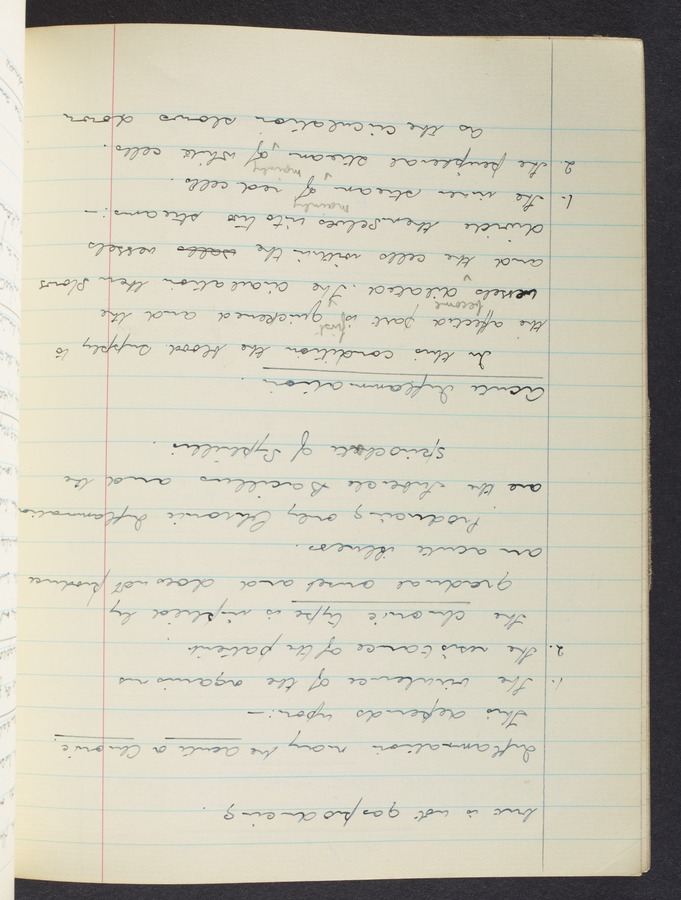 but is not gas producing.
Inflammation may be acute or Chronic.
This depends upon:—
1. The virulence of the organisms
2. The resistance of the patient.
The chronic type is implied by
gradual onset and does not produce
an acute illness.
Producing only Chronic Inflammation
are the Tubercle Bacillus and the
Spirochete of Syphilis.
Acute Inflammation.
In this condition the blood supply to
the affected part is first quickened and the
vessels become dilated. The circulation then slows
and the cells within the walls vessels
divide themselves into two streams:—
1. The inner stream mainly of red cells.
2. The peripheral stream mainly of white cells.
As the circulation slows down